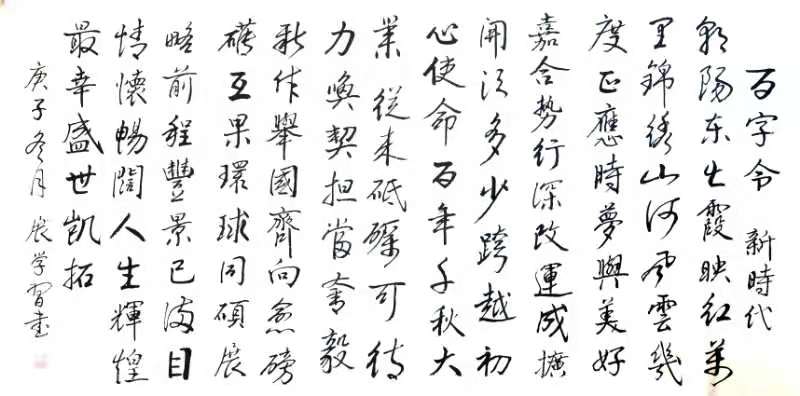 百字令 新時代
朝陽东出霞映红萬
里錦綉山河风雲幾
度正應時夢興美好
嘉合势行深改運成擴
開放多少跨越初
心使命百年千秋大
業從来砥礪可待
力喚契担當奮毅
新作舉國齊向愈磅
礴互果環球同碩展
略前程豐景已满目
情懷暢闊人生輝煌
最幸盛世凯拓
庚子冬月展学習書